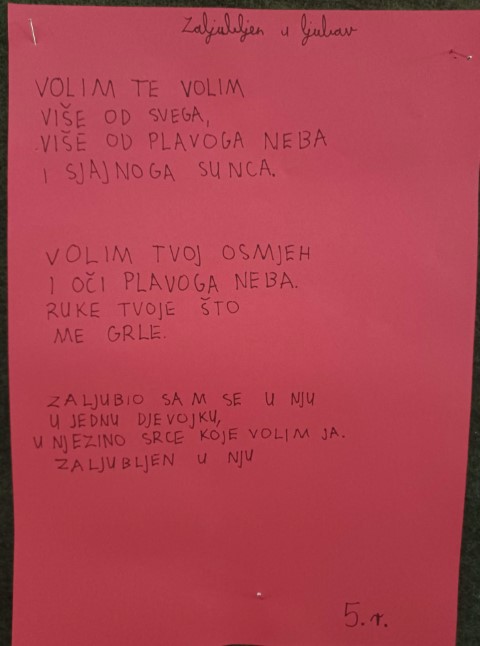 Zaljubljen u ljubav
VOLIM TE VOLIM
VIŠE OD SVEGA,
VIŠE OD PLAVOGA NEBA
I SJAJNOGA SUNCA.
VOLIM TVOJ OSMJEH
I OČI PLAVOGA NEBA.
RUKE TVOJE ŠTO
ME GRLE.
ZALJUBIO SAM SE U NJU
U JEDNU DJEVOJKU,
U NJEZINO SRCE KOJE VOLIM JA.
ZALJUBLJEN U NJU
5.r.